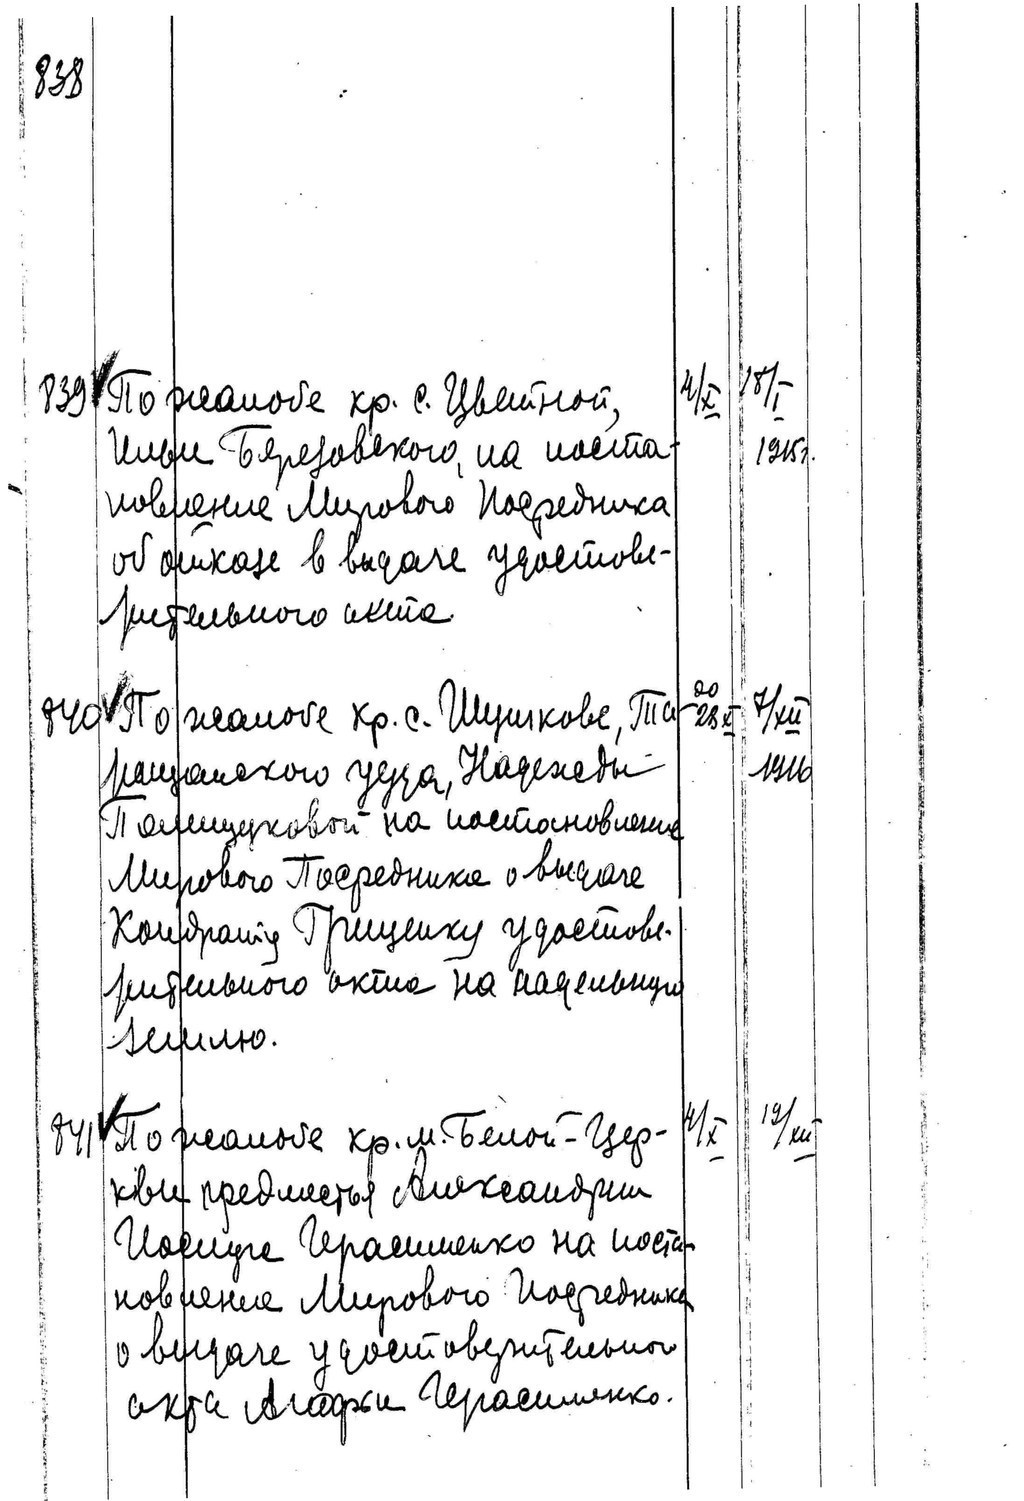 838
839 По жалобе кр. с. Цветной, 4/X 18/I
Ильи Березовского, на поста- 1915г.
новление Мирового Посредника
об отказе в выдаче удостове-
рительного акта.
840 По жалобе кр. с. Шушковс, Та- 20 28 X 7/XII
ращанского уезда, Надежды 1916
Полищуковой на постановление
Мирового Посредника о выдаче
Кондрату Грищенку удостове-
рительного акта на надельную
землю.
841 По жалобе кр. м. Белой-Цер- 4/X 19/XII
кви предместья Александрии
Иосифа Герасименко на поста-
новление Мирового Посредника
о выдаче удостоверительного
акта Агафьи Герасименко.